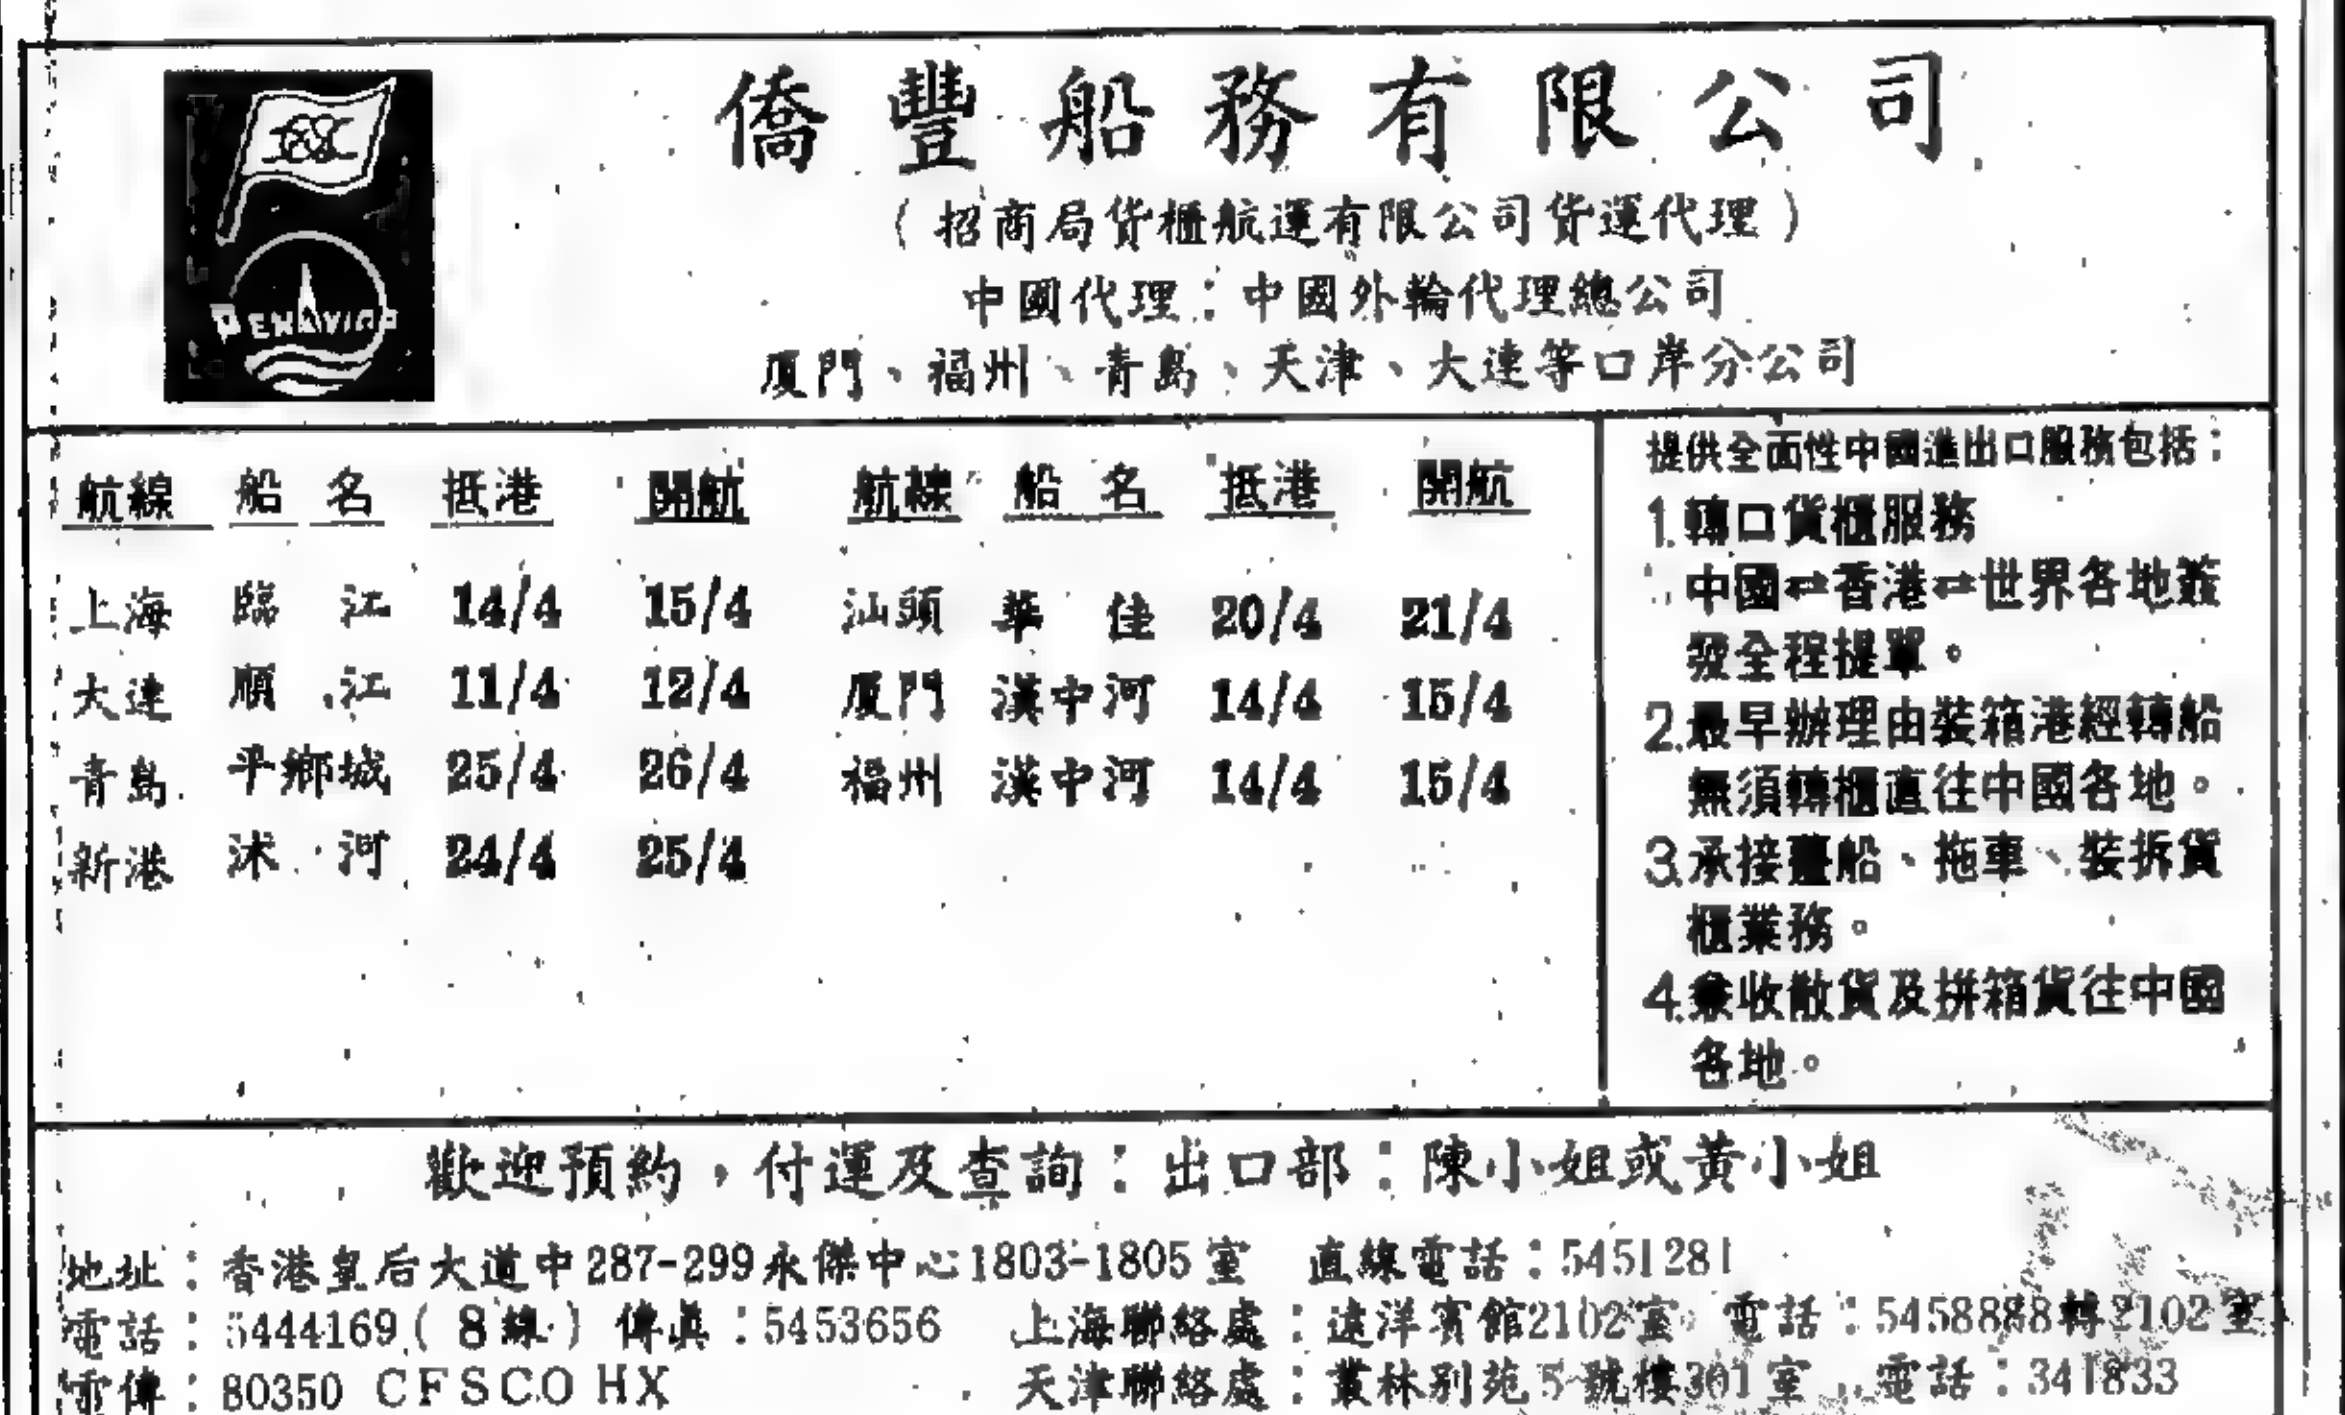 僑豐船務有限公司
(招商局貨櫃航運有限公司貨運代理)
中國代理：中國外輪代理總公司
厦門、福州、青島、天津、大連等口岸分公司
航線 船名 抵港 開航 航線 船名 抵港 開航
上海 臨江 14/4 15/4 汕頭 華佳 20/4 21/4
大連 順江 11/4 12/4 厦門 漢中河 14/4 15/4
青島 平鄉城 25/4 26/4 福州 漢中河 14/4 15/4
新港 沭河 24/4 25/4
提供全面性中國進出口服務包括：
1.轉口貨櫃服務
中國⇌香港⇌世界各地簽
發全程提單。
2.最早辦理由裝箱港經轉船
無須轉櫃直往中國各地。
3.承接躉船、拖車、裝拆貨
櫃業務。
4.兼收散貨及拼箱貨往中國
各地。
歡迎預約，付運及查詢：出口部：陳小姐或黃小姐
地址：香港皇后大道中287-299永傑中心1803-1805室 直線電話：5451281
電話：5444169(8線) 傳眞：5453656 上海聯絡處：遠洋賓館2102室 電話：5458888轉2102室
電傳：80350 CFSCO HX 天津聯絡處：叢林別苑5號樓301室 電話：341833